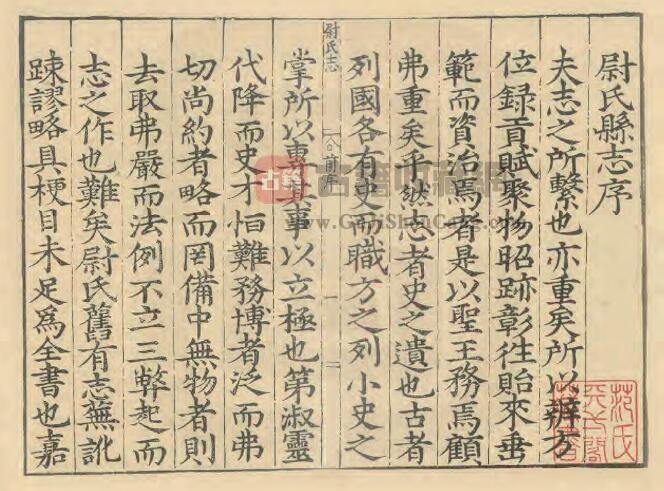 尉氏縣志序
夫志之所繫也亦重矣所以辨方
位録貢賦聚物昭跡彰徃貽來垂
範而資治焉者是以聖王務焉顧
弗重矣乎然志者史之遺也古者
列國各有史而職方之列小史之
尉氏志
前序
一
掌所以專其事以立極也第淑靈
代降而史才恒難務博者泛而弗
切尚約者略而罔備中無物者則
去取弗嚴而法例不立三弊起而
志之作也難矣尉氏舊有志無訛
踈謬略具梗目未足爲全書也嘉
范氏天一閣藏書
古籍收藏網